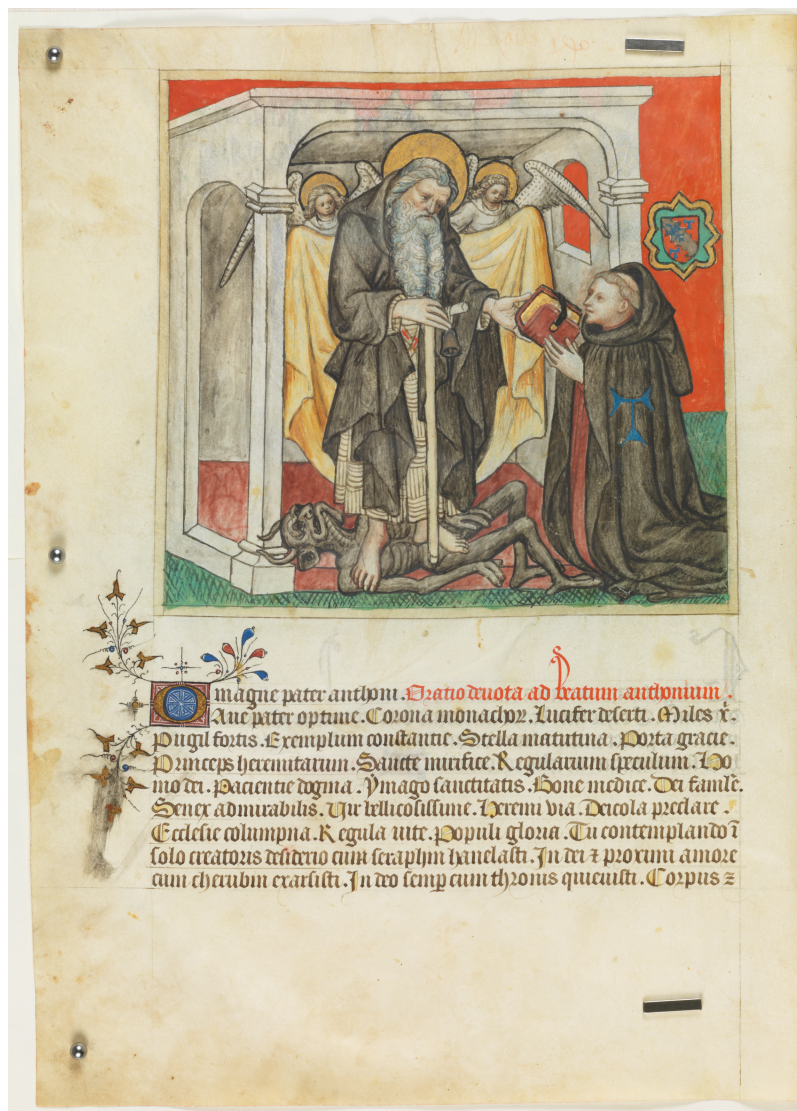 O magne pater anthoni. Oratio deuota ad beatum anthonium.
Aue pater optime. Corona monachoꝝ. Lucifer deserti. Miles x̄.
Pugil fortis. Exemplum constantie. Stella matutina. Porta gracie.
Princeps heremitarum. Sancte mirifice. Regularium speculum. Ho
mo dei. Paciencie dogma. Ymago sanctitatis. Bone medice. Dei famile.
Senex admirabilis. Vir bellicosissime. Heremi via. Deicola preclare.
Ecclesie columpna. Regula uite. Populi gloria. Tu contemplando ī
solo creatoris desiderio cum seraphin hanelasti. In dei ⁊ proximi amore
cum cherubin exarsisti. In deo semꝑ cum thronis quieuisti. Corpus ⁊